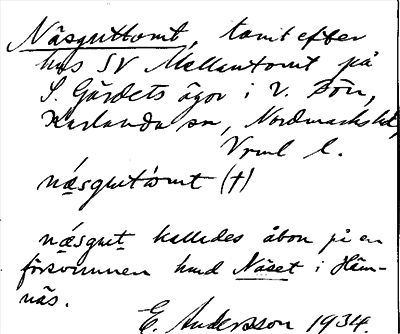 Näsguttomt, tomt efter
hus SV Mellantomt på
S. Gärdets ägor i V. Bön,
Karlanda sn, Nordmarks hd,
Vrml l.
næsgutómt (†)
næsgut kallades åbon på en
försvunnen hmd Näset i Häm-
näs.
E. Andersson 1934.